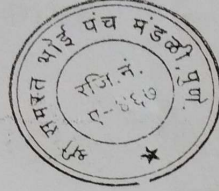 श्री समस्त भोई पंच मंडळी, पुणे.
रजि. नं.
ए-४६७